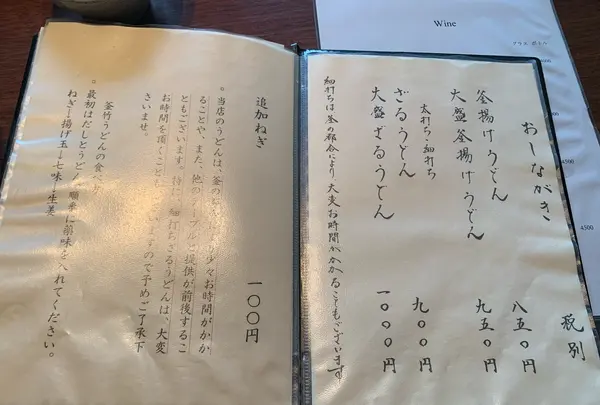 Wine
グラス ボトル
4500
4500
おしながき
税別
釜揚げうどん 八五〇円
大盛釜揚げうどん 九五〇円
太打ち・細打ち
ざるうどん 九〇〇円
大盛ざるうどん 一〇〇〇円
細打ちは釜の都合により、大変お時間がかかることもございます
追加ねぎ 一〇〇円
。当店のうどんは、釜の 少々お時間がかか
ることや、また、他のテーブルと提供が前後するこ
ともございます。特に、細打ちざるうどんは、大変
お時間を頂くことも いますので予めご了承下
さいませ。
釜竹うどんの食べ方
。最初はだしとうどん 順番に薬味を入れてください。
ねぎ→揚げ玉→七味→生姜